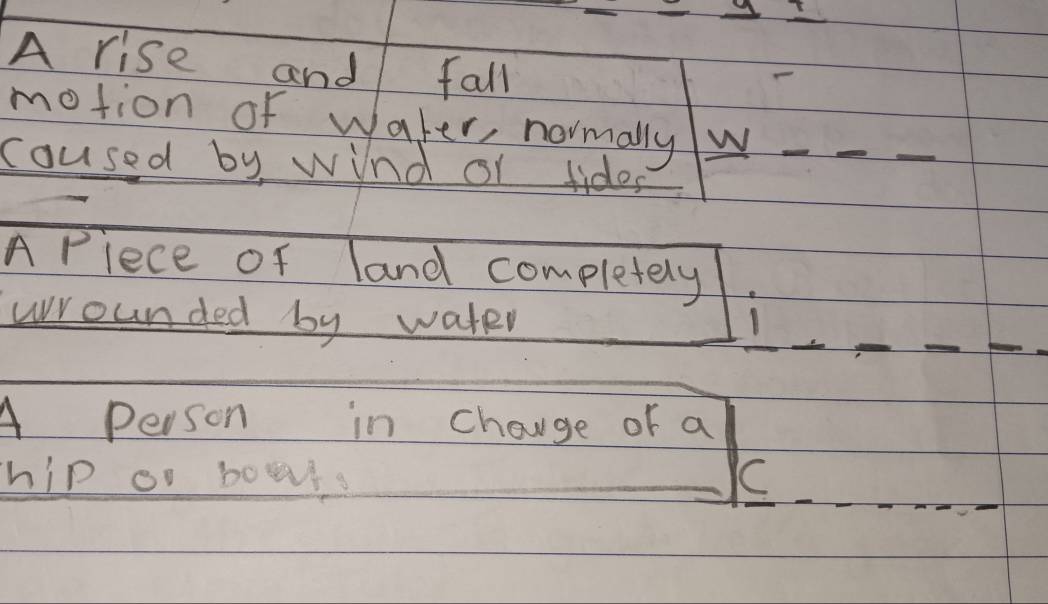 A rise and fall
motion of water, normally w _ _ _
caused by wind or tides
A Piece of land completely
urrounded by water i _ _ _ _ _
A Person in charge of a
hip or boat. c _ _ _ _ _ _